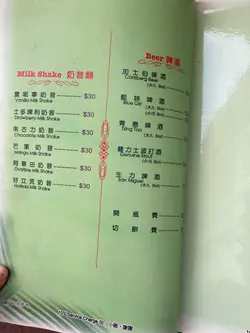 Milk Shake 奶昔類
雲呢拿奶昔 $30
Vanilla Milk Shake
士多啤利奶昔 $30
Strawberry Milk Shake
朱古力奶昔 $30
Chocolate Milk Shake
芒果奶昔 $30
Mango Milk Shake
阿華田奶昔 $30
Ovaltine Milk Shake
好立克奶昔 $30
Horlicks Milk Shake
Beer 啤酒
加士伯啤酒
Carlsberg Beer
藍妹啤酒
Blue Girl
青島啤酒
Tsing Tao
健力士波打酒
Genuine Stout
生力啤酒
San Miguel
開瓶費
切餅費
Service Charge 加一小帳，謝謝